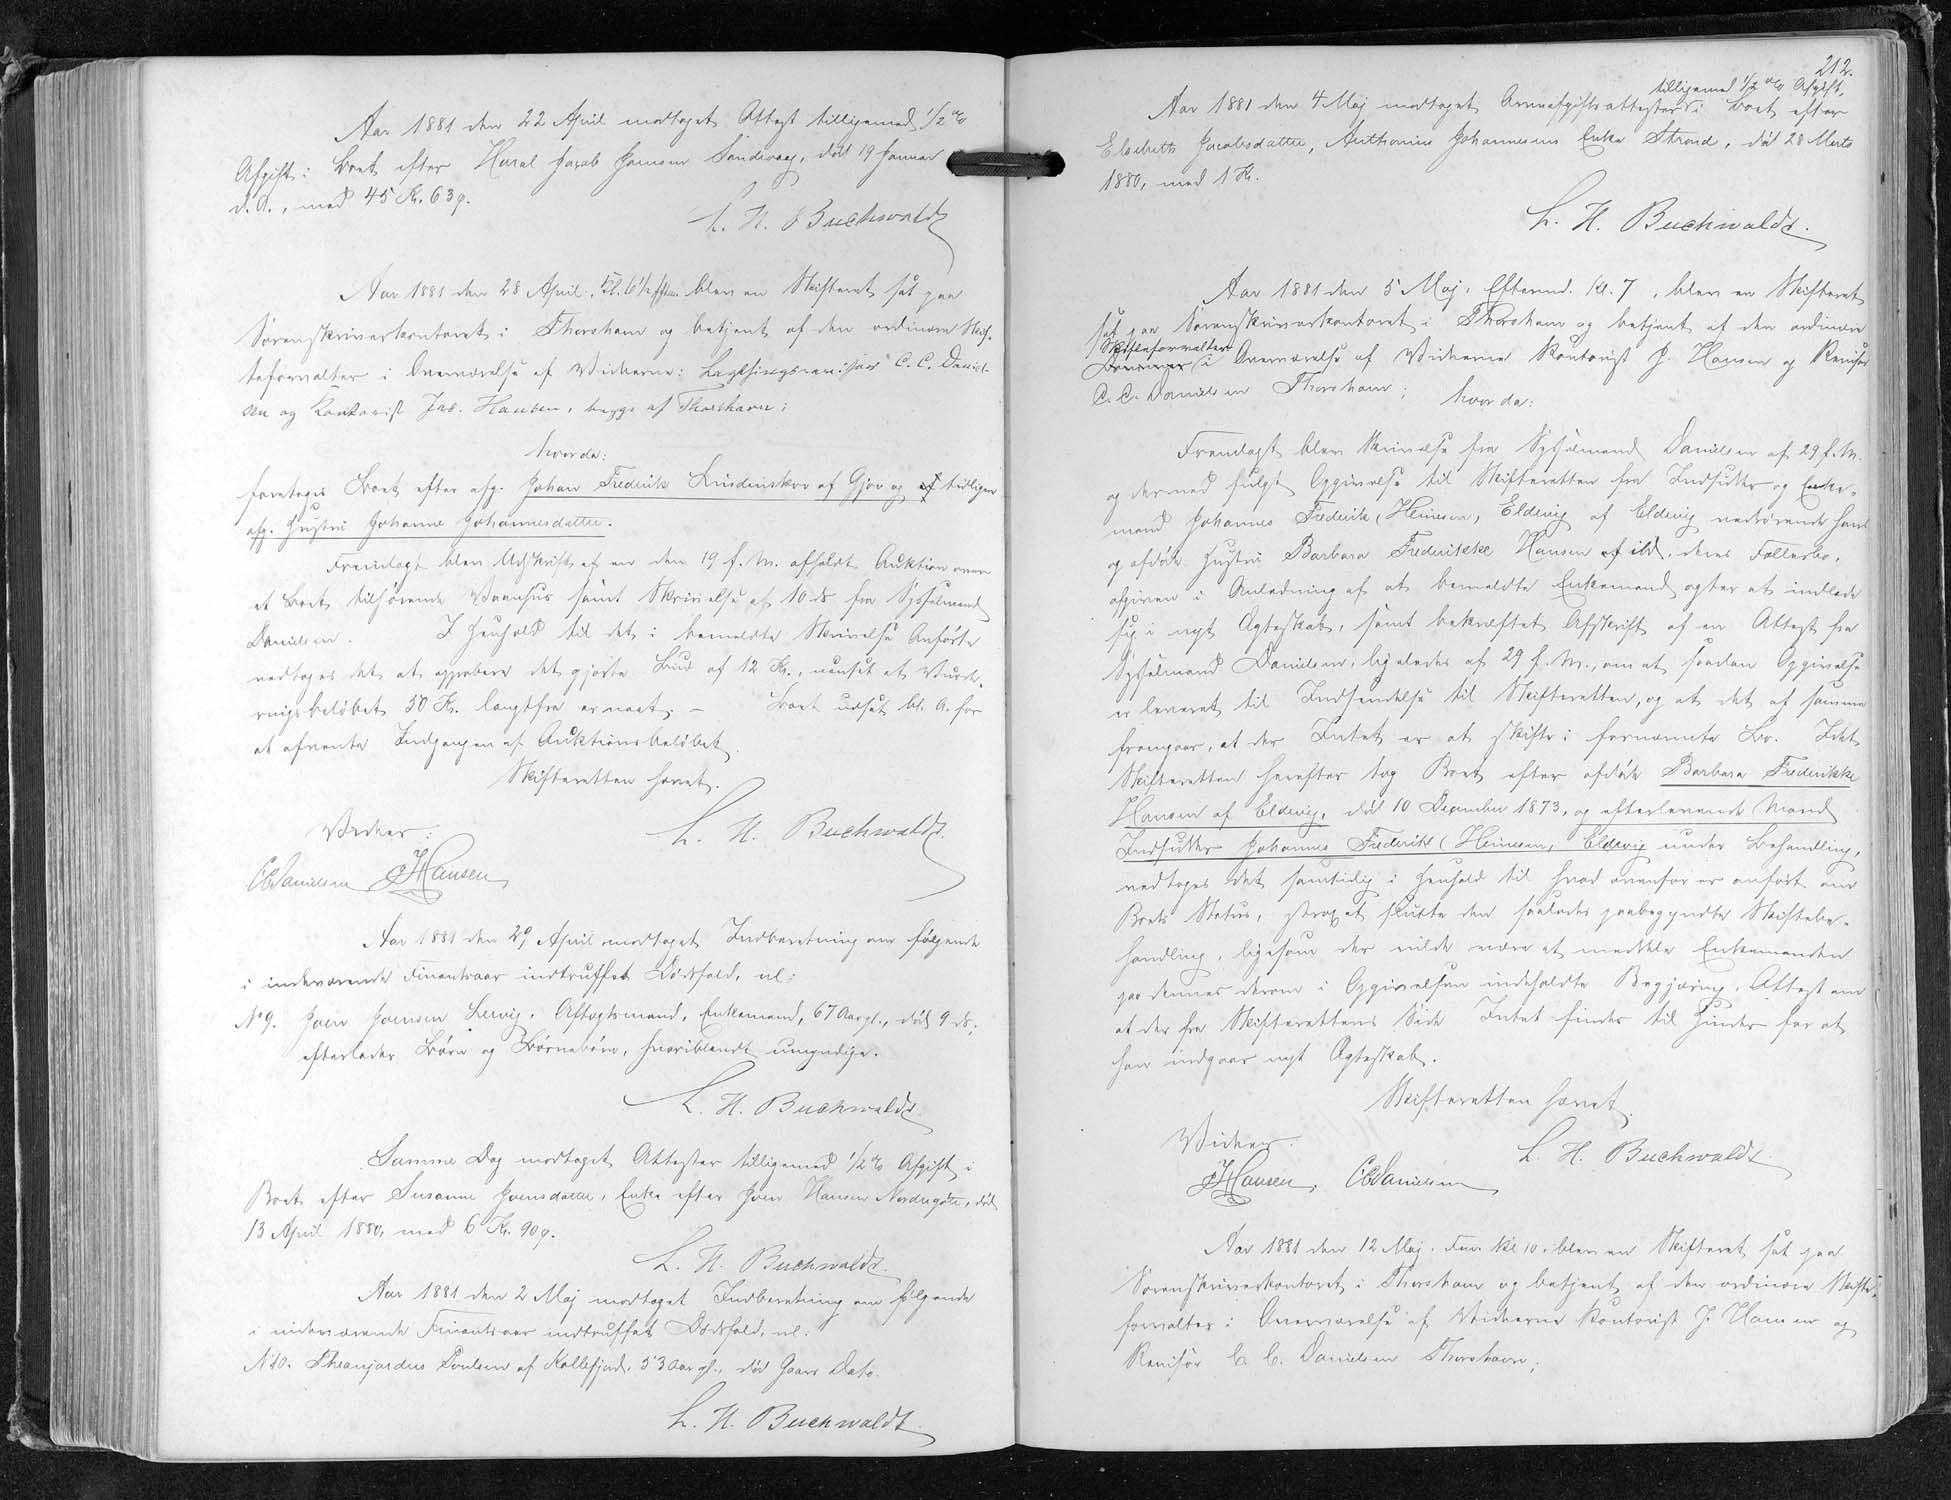 Aar 1881 den 22 April modtaget Attest tilligemed 1/2 %
Afgift i Boet efter Haral Jacob Joensen Sandevaag, død 19 Januar
d. A., med 45 Kr. 63 ø.
L. H. Buchwaldt
Aar 1881 den 28 April, Kl. 6 1/2 blev en Skifteret sat paa
Sorenskriverkontoret i Thorshavn og betjent af den ordinære Skif-
teforvalter i Overværelse af Vidnerne: Lagthingsrevisor C. C. Daniel-
sen og Kontorist Jac. Hansen, begge af Thorshavn;
hvorda:
foretoges Boet efter afg. Johan Frederik af Gjov og tidligere
afg. Hustru Johanne Johannesdatter.
Fremlagt blev Udskrift af en den 19 f. M. afholdt Auktion over
et Boet tilhørende Vaanhus samt Skrivelse af 10 ds fra Sysselmand
Danielsen. I Henhold til det i bemeldte Skrivelse Anførte
vedtoges det at approbere det gjorte Bud af 12 Kr., uanset at Vurde-
ringsbeløbet 50 Kr. langtfra er naaet. – Boet udsat bl. A. for
at afvente Indgangen af Auktionsbeløbet.
Skifteretten hævet.
Vidner: L. H. Buchwaldt.
CCDanielsen JHansen
Aar 1881 den 29 April modtaget Indberetning om følgende
i indeværende Finantsaar indtruffet Dødsfald, nl:
No 9. Joen Joensen Lervig, Aftægtsmand, Enkemand, 67 Aar gl., død 9 ds.
efterlader Børn og Børnebørn, hvoriblandt umyndige.
L. H. Buchwaldt.
Samme Dag modtaget Attester tilligemed 1/2 % Afgift i
Boet efter Susanne Joensdatter, Enke efter Joen Hansen Nordregøte, død
13 April 1880, med 6 Kr. 90 ø.
L. H. Buchwaldt.
Aar 1881 den 2 Maj modtaget Indberetning om følgende
i indeværende Finantsaar indtruffet Dødsfald, nl:
No 10. Poulsen af Kollefjord, 53 Aar gl., død Gaars Dato.
L. H. Buchwaldt
212.
tilligemed 1/2 % Afgift,
Aar 1881 den 4 Maj modtaget Arveafgiftsattester i Boet efter
Elsebeth Jacobsdatter, Anthonius Johannesens Enke Strand, død 28 Marts
1880, med 1 Kr.
L. H. Buchwaldt.
Aar 1881 den 5 Maj, Eftermd. Kl. 7, blev en Skifteret
sat paa Sorenskriverkontoret i Thorshavn og betjent af den ordinære
Skifteforvalter
i Overværelse af Vidnerne Kontorist J. Hansen og Revisor
C. C. Danielsen Thorshavn; hvorda:
Fremlagt blev Skrivelse fra Sysselmand Danielsen af 29 f. M.
og dermed fulgt Opgivelse til Skifteretten fra Indsidder og Enke-
mand Johannes Frederik (Heinesen) Eldevig af Eldevig vedrørende hans
og afdøde Hustru Barbara Frederikke Hansen af ibd. deres Fællesbo,
afgiven i Anledning af at bemeldte Enkemand agter at indlade
sig i nyt Ægteskab, samt bekræftet Afskrift af en Attest fra
Sysselmand Danielsen, ligeledes af 29 f. M., om at saadan Opgivelse
er leveret til Indsendelse til Skifteretten, og at det af samme
fremgaar, at der Intet er at skifte i fornævnte Bo. Idet
Skifteretten herefter tog Boet efter afdøde Barbara Frederikke
Hansen af Eldevig, død 10 December 1873, og efterlevende Mand
Indsidder Johannes Frederik (Heinesen) Eldevig under Behandling,
vedtoges det samtidig i Henhold til hvad ovenfor er anført om
Boets Status, strax at slutte den saaledes paabegyndte Skiftebe-
handling, ligesom der vilde være at meddele Enkemanden
paa dennes derom i Opgivelsen indeholdte Begjæring, Attest om
at der fra Skifterettens Side Intet findes til Hinder for at
han indgaar nyt Ægteskab.
Skifteretten hævet.
Vidner: L. H. Buchwaldt.
JHansen, CCDanielsen
Aar 1881 den 12 Maj, Form. Kl 10, blev en Skifteret sat paa
Sorenskriverkontoret i Thorshavn og betjent af den ordinære Skifte-
forvalter i Overværelse af Vidnerne Kontorist J. Hansen og
Revisor C. C. Danielsen Thorshavn;